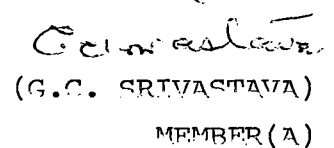 (G.C. SRIVASTAVA)
MEMBER(A)